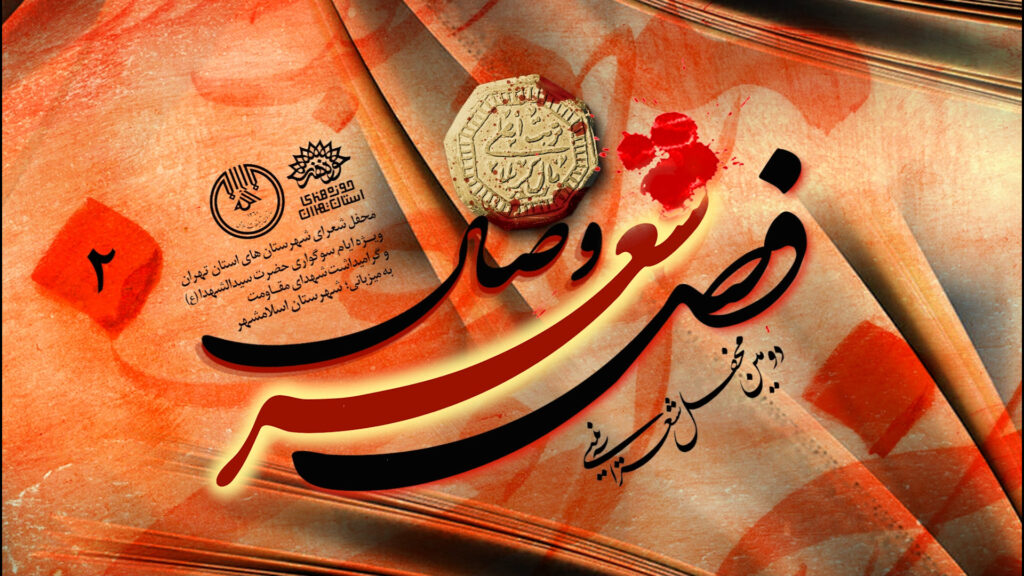 فصل شعر وصال
دومین محفل شعر آیینی
تربت اعلی
کربلا
حوزه هنری
استان تهران
محفل شعرای شهرستان های استان تهران
ویـژه ایام سوگواری حضرت سیدالشهدا(ع)
و گرامیداشت شهدای مقاومت
به میزبانی: شهرستان اسلامشهر
۲